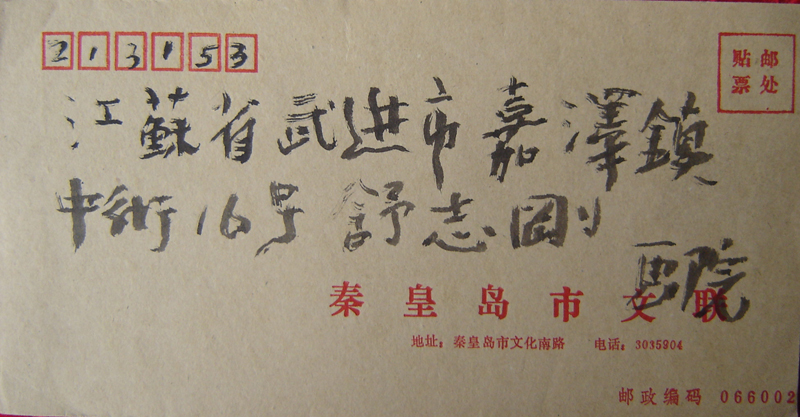 213153
贴邮
票处
江蘇省武进市嘉澤鎮
中街16号 舒志剛
画院
秦皇岛市文联
地址：秦皇岛市文化南路 电话：3035904
邮政编码 066002